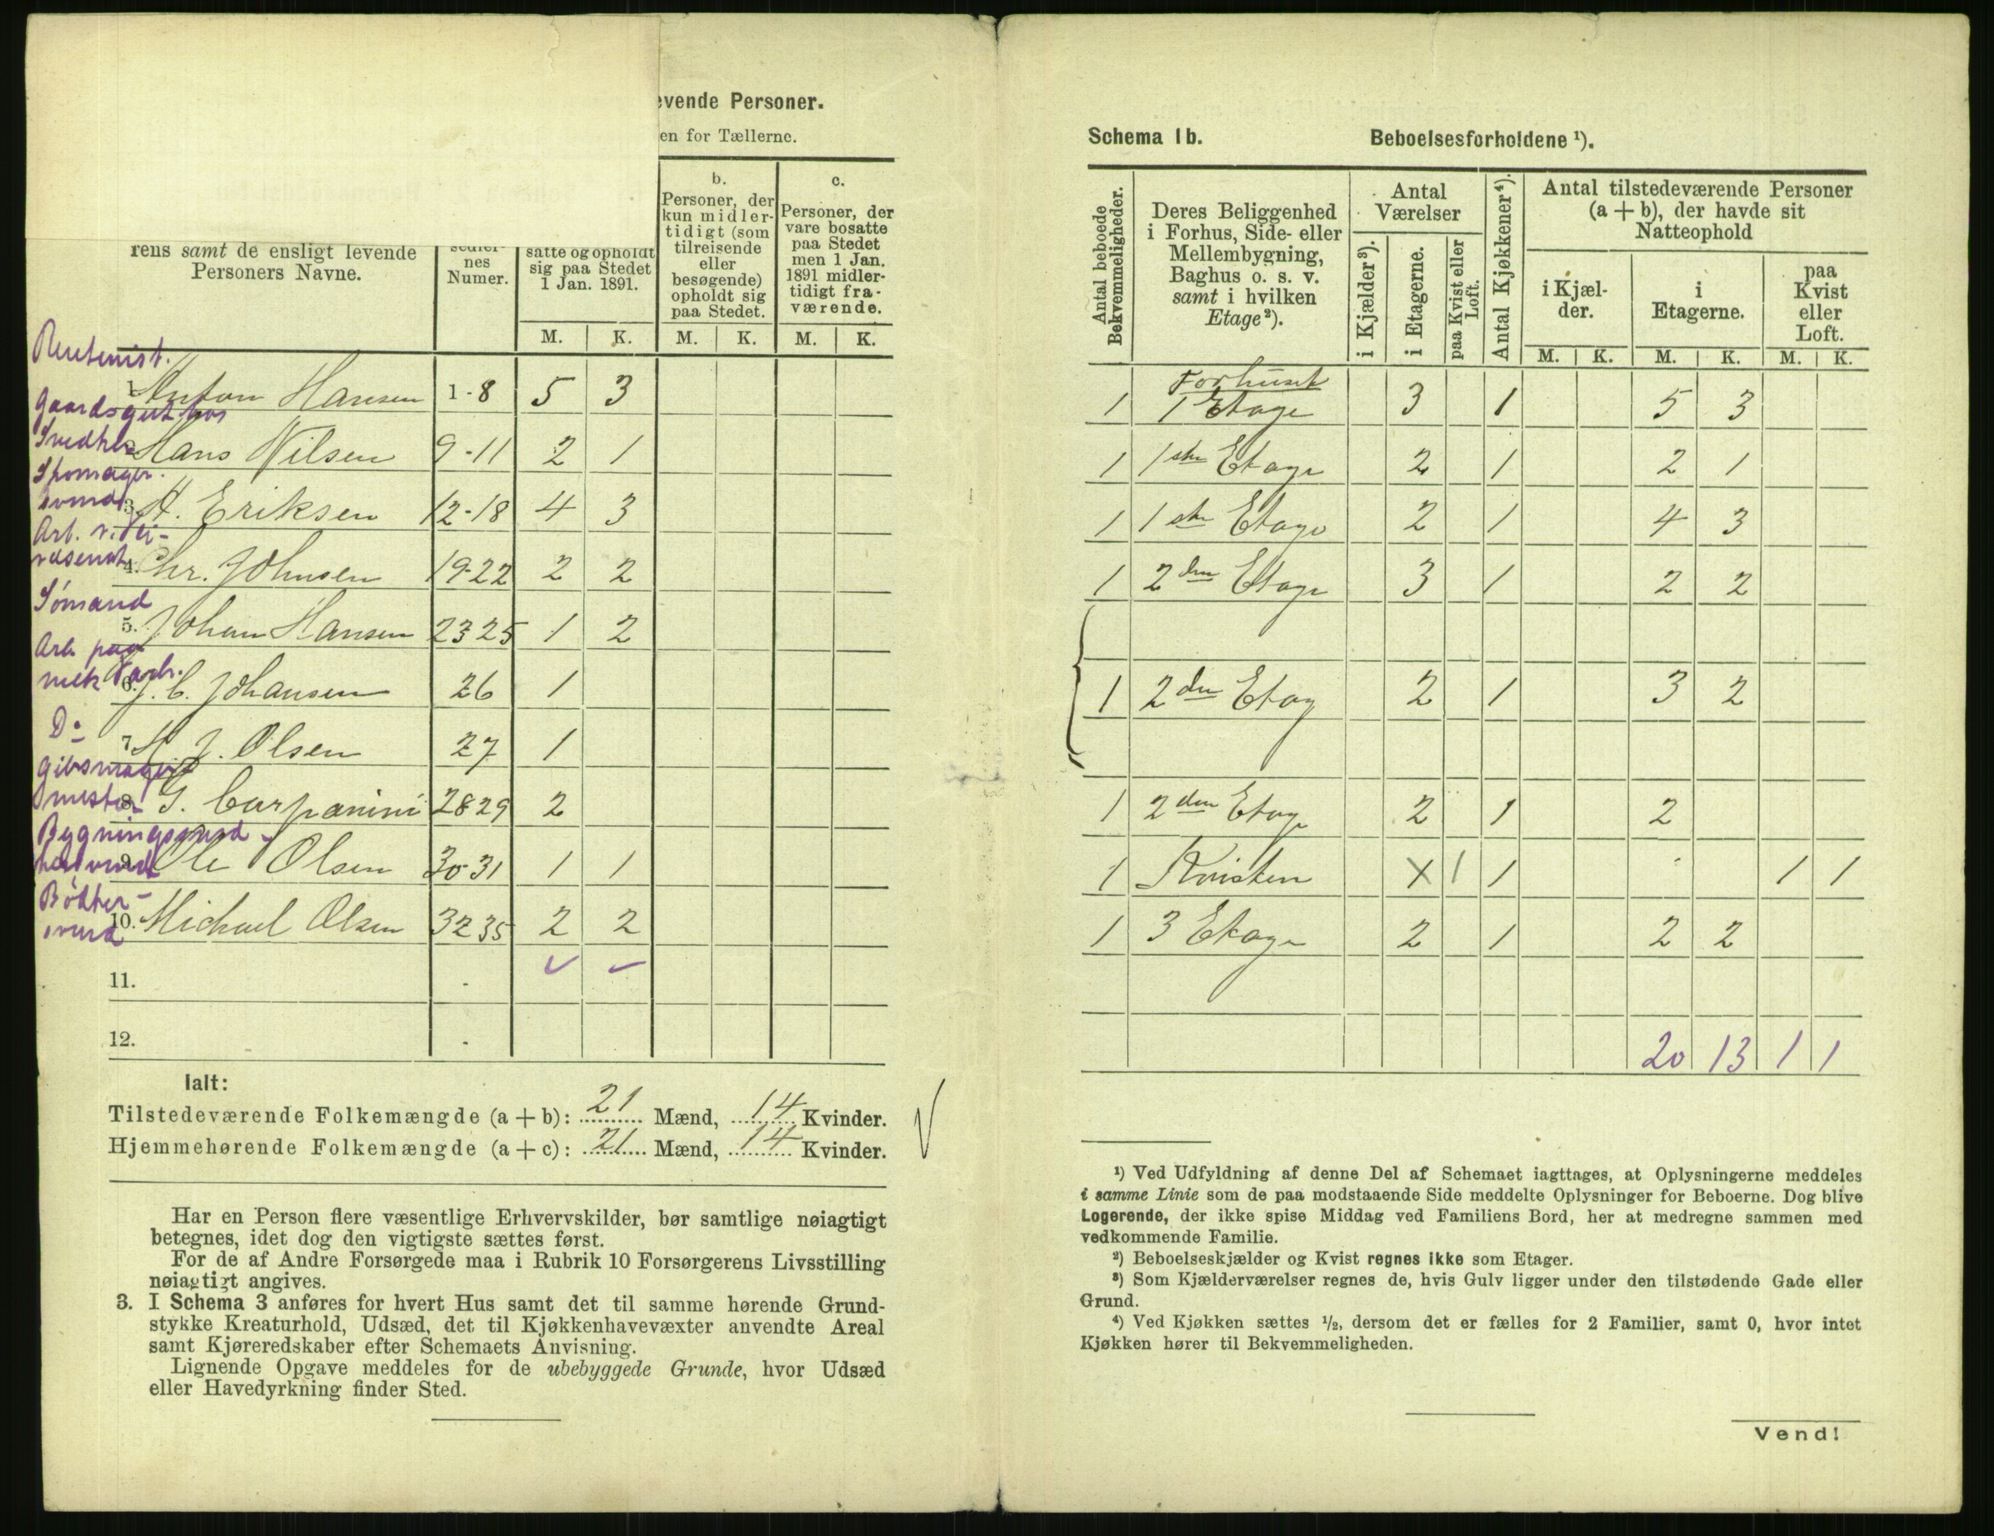 evende Personer.
en for Tællerne.
rens samt de ensligt levende
Personers Navne.
nes
Numer.
satte og opholdt
sig paa Stedet
1 Jan. 1891.
b.
Personer, der
kun midler-
tidigt (som
tilreisende
eller
besøgende)
opholdt sig
paa Stedet.
c.
Personer, der
vare bosatte
paa Stedet
men 1 Jan.
1891 midler-
tidigt fra-
værende.
M. K. M. K. M. K.
Rentenist.
1. Anton Hansen 1-8 5 3
Gaardsgut hos
2. Hans Nilsen 9-11 2 1
3. H. Eriksen 12-18 4 3
4. Chr. Johnsen 19-22 2 2
Sømand
5. Johan Hansen 23 25 1 2
Arb. paa
mek Værk.
6. J. C. Johansen 26 1
Do
7. H. J. Olsen 27 1
Gibsmager
mester
8. G. Carpanini 28 29 2
9. Ole Olsen 30-31 1 1
Bødker-
svend
10. Michael Olsen 32 35 2 2
11.
12.
Ialt:
Tilstedeværende Folkemængde (a + b): 21 Mænd, 14 Kvinder.
Hjemmehørende Folkemængde (a + c): 21 Mænd, 14 Kvinder.
Har en Person flere væsentlige Erhvervskilder, bør samtlige nøiagtigt
betegnes, idet dog den vigtigste sættes først.
For de af Andre Forsørgede maa i Rubrik 10 Forsørgerens Livsstilling
nøiagtigt angives.
3. I Schema 3 anføres for hvert Hus samt det til samme hørende Grund-
stykke Kreaturhold, Udsæd, det til Kjøkkenhavevæxter anvendte Areal
samt Kjøreredskaber efter Schemaets Anvisning.
Lignende Opgave meddeles for de ubebyggede Grunde, hvor Udsæd
eller Havedyrkning finder Sted.
Schema 1b. Beboelsesforholdene ¹).
Antal beboede
Bekvemmeligheder.
Deres Beliggenhed
i Forhus, Side- eller
Mellembygning,
Baghus o. s. v.
samt i hvilken
Etage²).
Antal
Værelser
i Kjælder³).
i Etagerne.
paa Kvist eller
Loft.
Antal Kjøkkener⁴).
Antal tilstedeværende Personer
(a + b), der havde sit
Natteophold
i Kjæl-
der.
i
Etagerne.
paa
Kvist
eller
Loft.
M. K. M. K. M. K.
Forhuset
1 1 Etage 3 1 5 3
1 1ste Etage 2 1 2 1
1 1ste Etage 2 1 4 3
1 2den Etage 3 1 2 2
1 2den Etag 2 1 3 2
1 2den Etag 2 1 2
1 Kvisten X 1 1 1 1
1 3 Etage 2 1 2 2
20 13 1 1
¹) Ved Udfyldning af denne Del af Schemaet iagttages, at Oplysningerne meddeles
i samme Linie som de paa modstaaende Side meddelte Oplysninger for Beboerne. Dog blive
Logerende, der ikke spise Middag ved Familiens Bord, her at medregne sammen med
vedkommende Familie.
²) Beboelseskjælder og Kvist regnes ikke som Etager.
³) Som Kjælderværelser regnes de, hvis Gulv ligger under den tilstødende Gade eller
Grund.
⁴) Ved Kjøkken sættes ½, dersom det er fælles for 2 Familier, samt 0, hvor intet
Kjøkken hører til Bekvemmeligheden.
Vend!